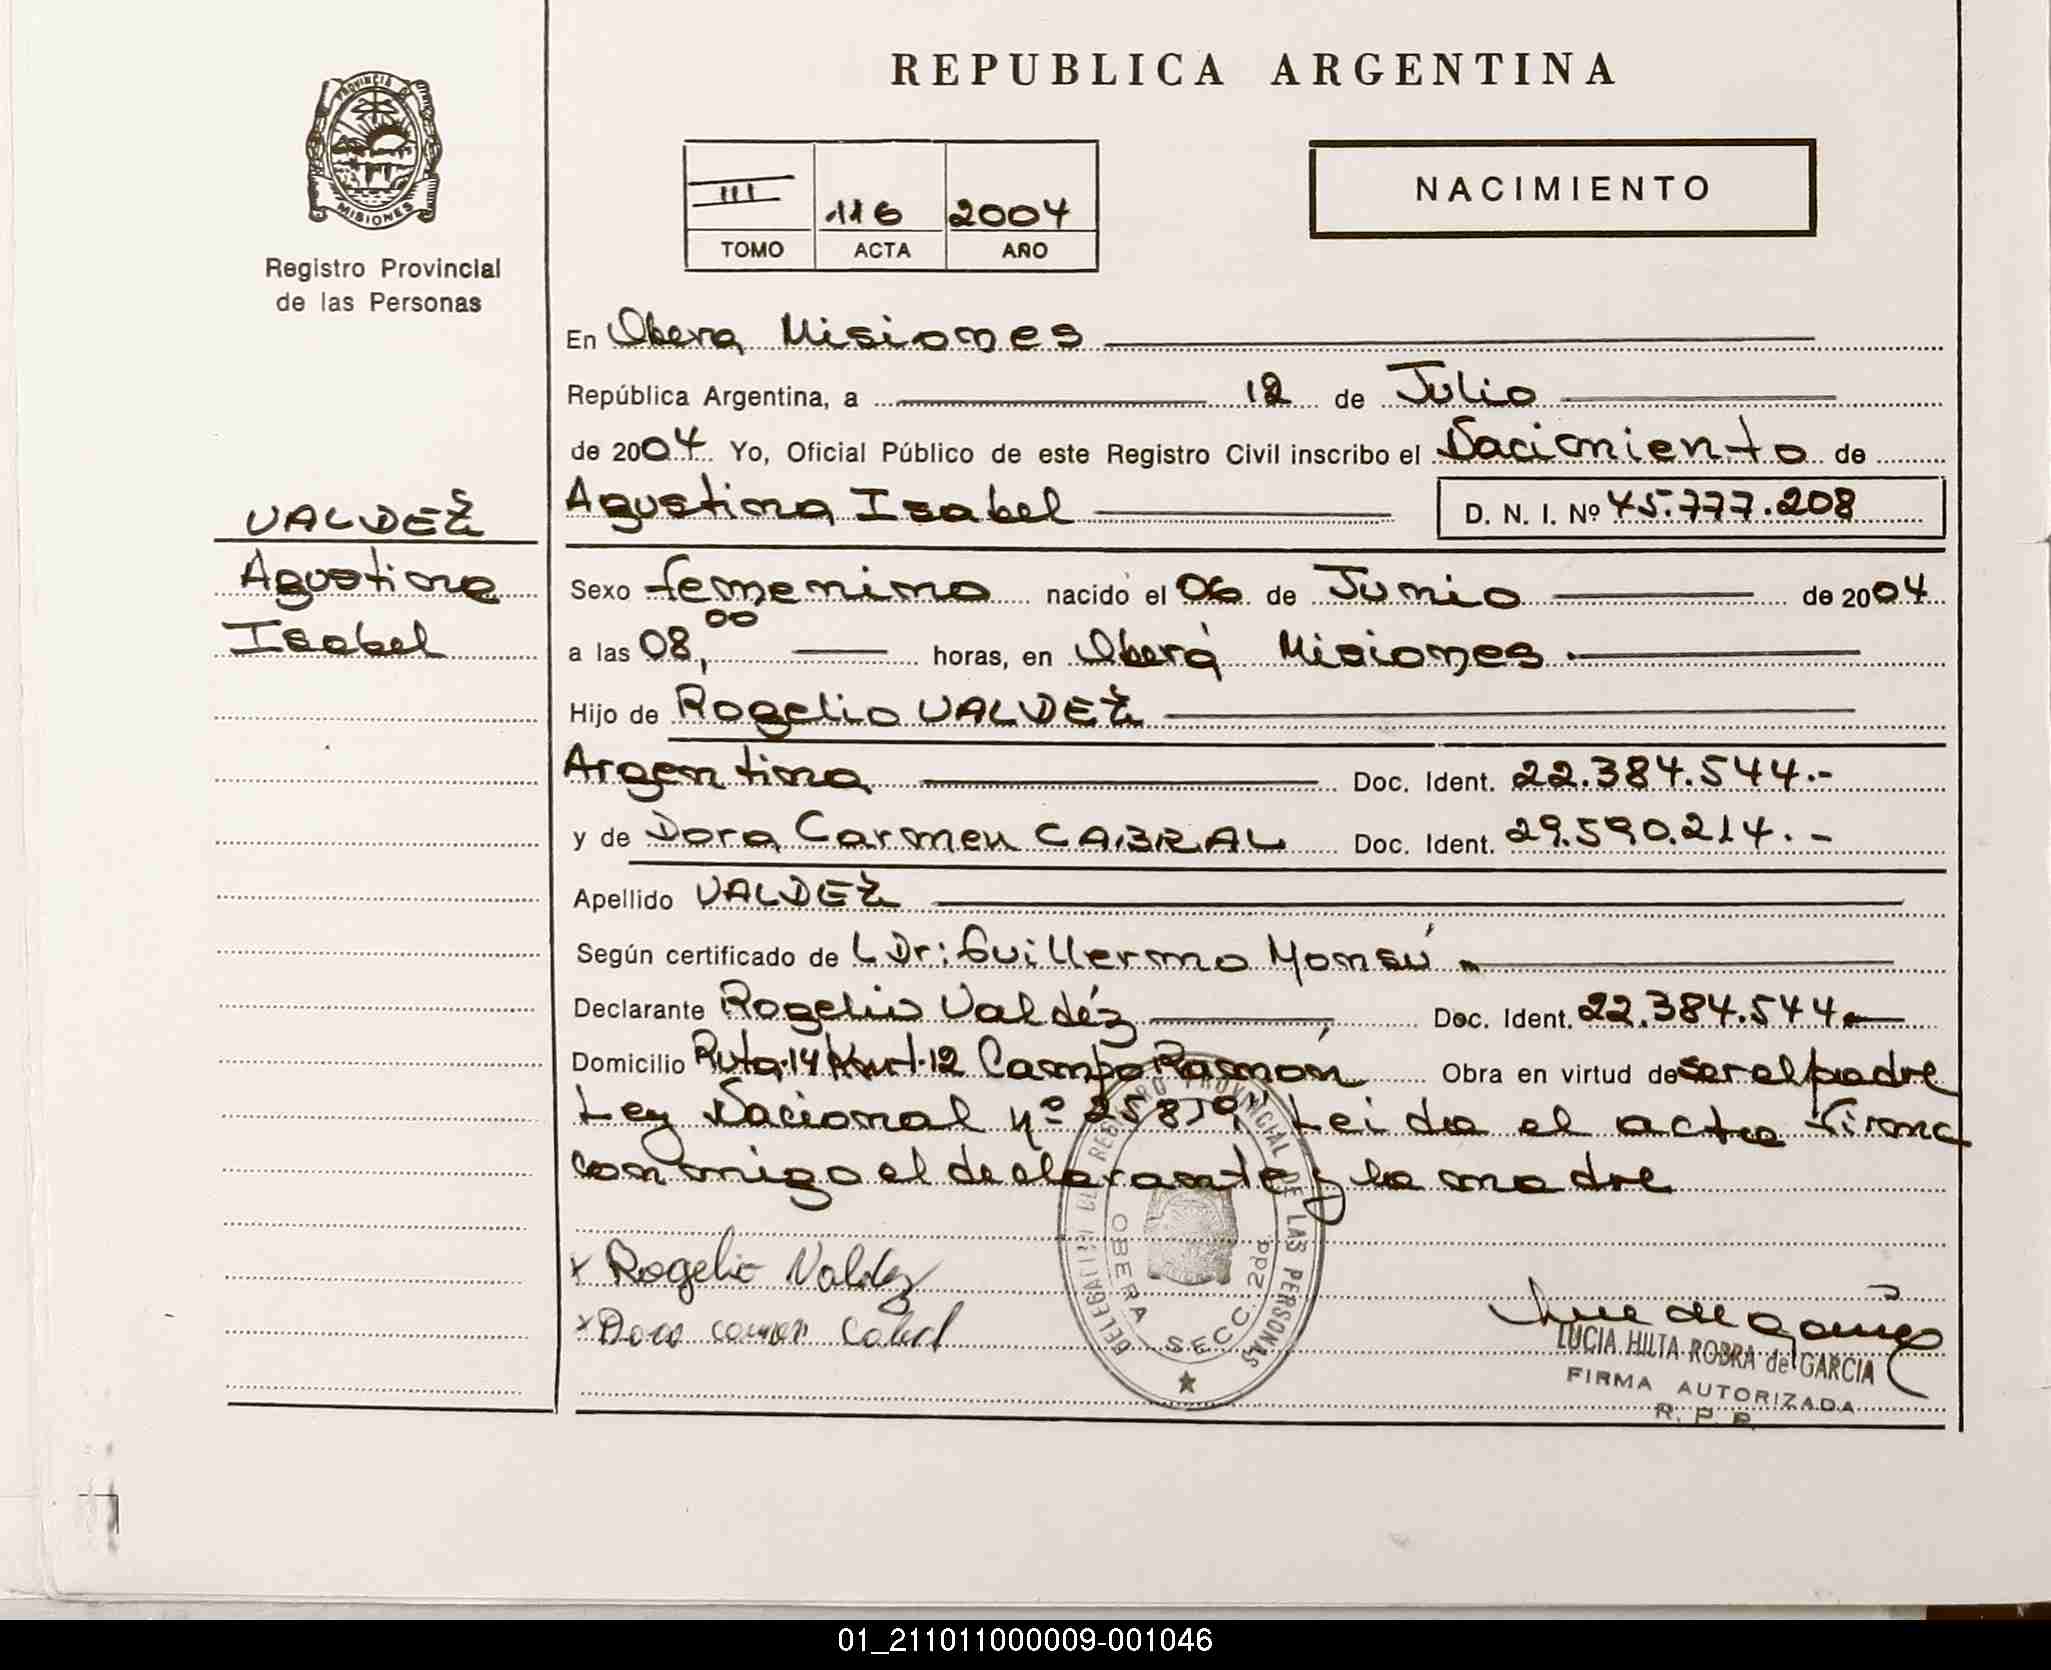 REPUBLICA ARGENTINA
PROVINCIA D
MISIONES
Registro Provincial
de las Personas
III 116 2004
TOMO ACTA AÑO
NACIMIENTO
En Obera Misiones
República Argentina, a 12 de Julio
de 2004 Yo, Oficial Público de este Registro Civil inscribo el Nacimiento de
Agustina Isabel D. N. I. Nº 45.777.208
VALDEZ
Agustina
Isabel
Sexo femenino nacido el 06 de Junio de 2004
a las 08,00 horas, en Oberá Misiones
Hijo de Rogelio VALDEZ
Argentina Doc. Ident. 22.384.544.-
y de Dora Carmen CABRAL Doc. Ident. 29.590.214.-
Apellido VALDEZ
Según certificado de L Dr: Guillermo Monsú
Declarante Rogelio Valdéz Doc. Ident. 22.384.544.-
Domicilio Ruta 14 12 Campo Ramón Obra en virtud de ser el padre
Ley Nacional nº Leida el acta firma
conmigo el declarante y la madre
x Rogelio Valdez
x Dora carmen Cabral
DELEGACION DEL REGISTRO PROVINCIAL DE LAS PERSONAS
OBERA SECC. 2da
LUCIA HILTA ROBRA de GARCIA
FIRMA AUTORIZADA
R. P. P.
01_211011000009-001046